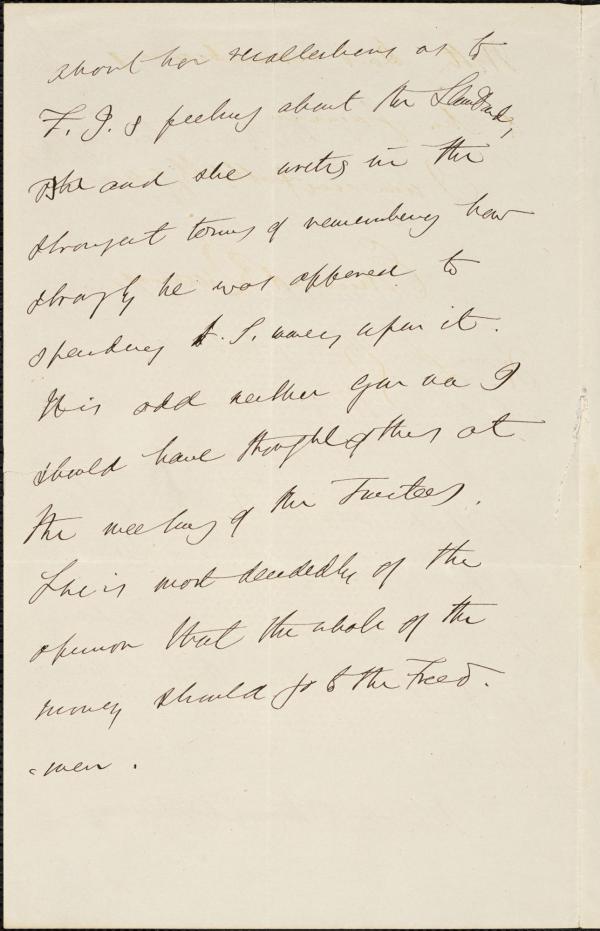 about her recollections as to
F. J.s feeling about the Standard,
she and she writes in the
strongest terms of remembering how
strongly he was opposed to
spending A. S. money upon it.
It is odd neither you nor I
should have thought of this at
the meeting of the Trustees.
She is most decidedly of the
opinion that the whole of the
money should go to the Freed-
-men.